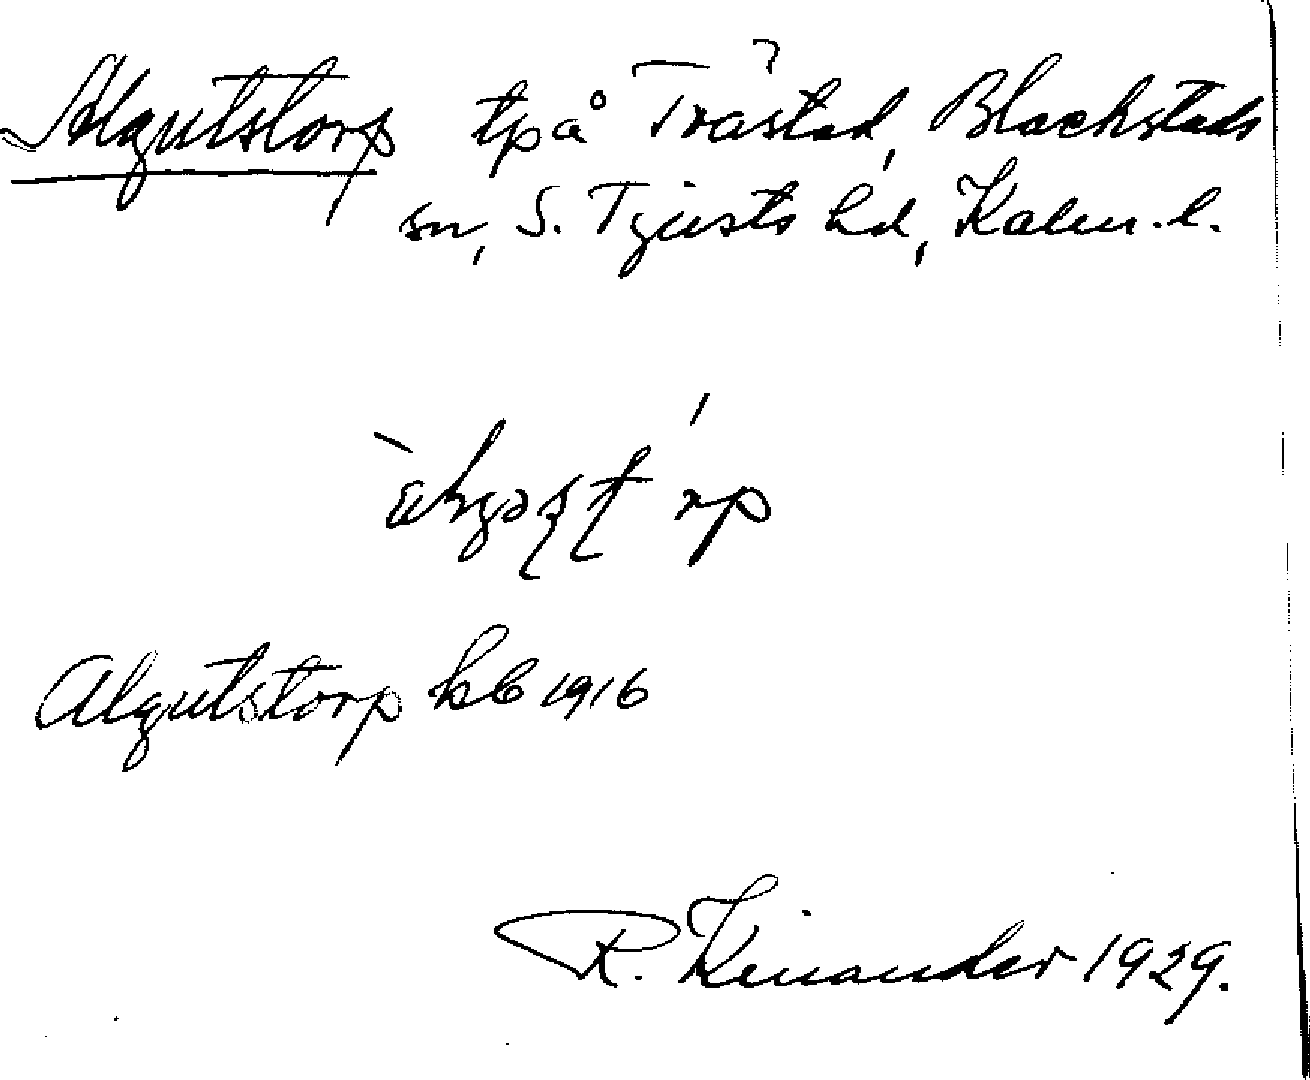 Algutstorp tp å Tvåstad, Blackstads
sn, S. Tjusts hd, Kalm. l.
Algutstorp kb 1916
R. Kinander 1929.